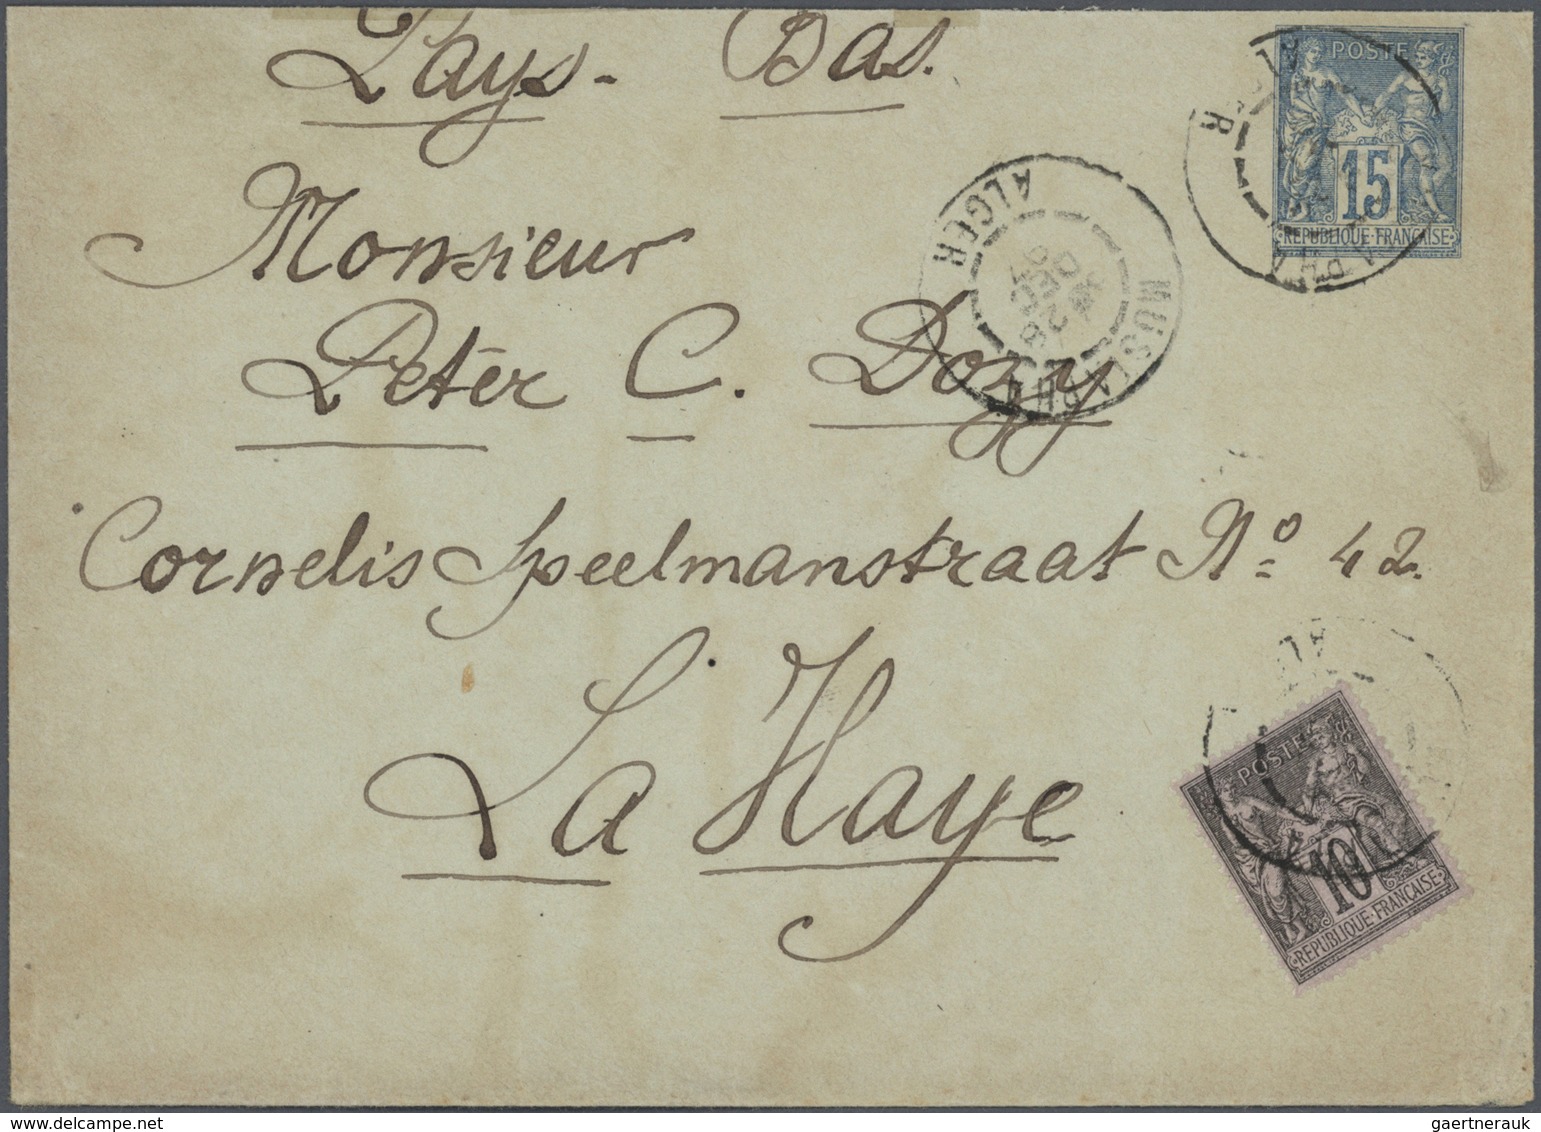 Pays-Bas.
POSTE
15
REPUBLIQUE FRANÇAISE
ALGER
Monsieur
MUSTAPHA
ALGER
28
DEC
Peter C. Dozy
Cornelis Speelmanstraat No. 42.
La Haye
POSTE
10
REPUBLIQUE FRANÇAISE
gaertnerauk